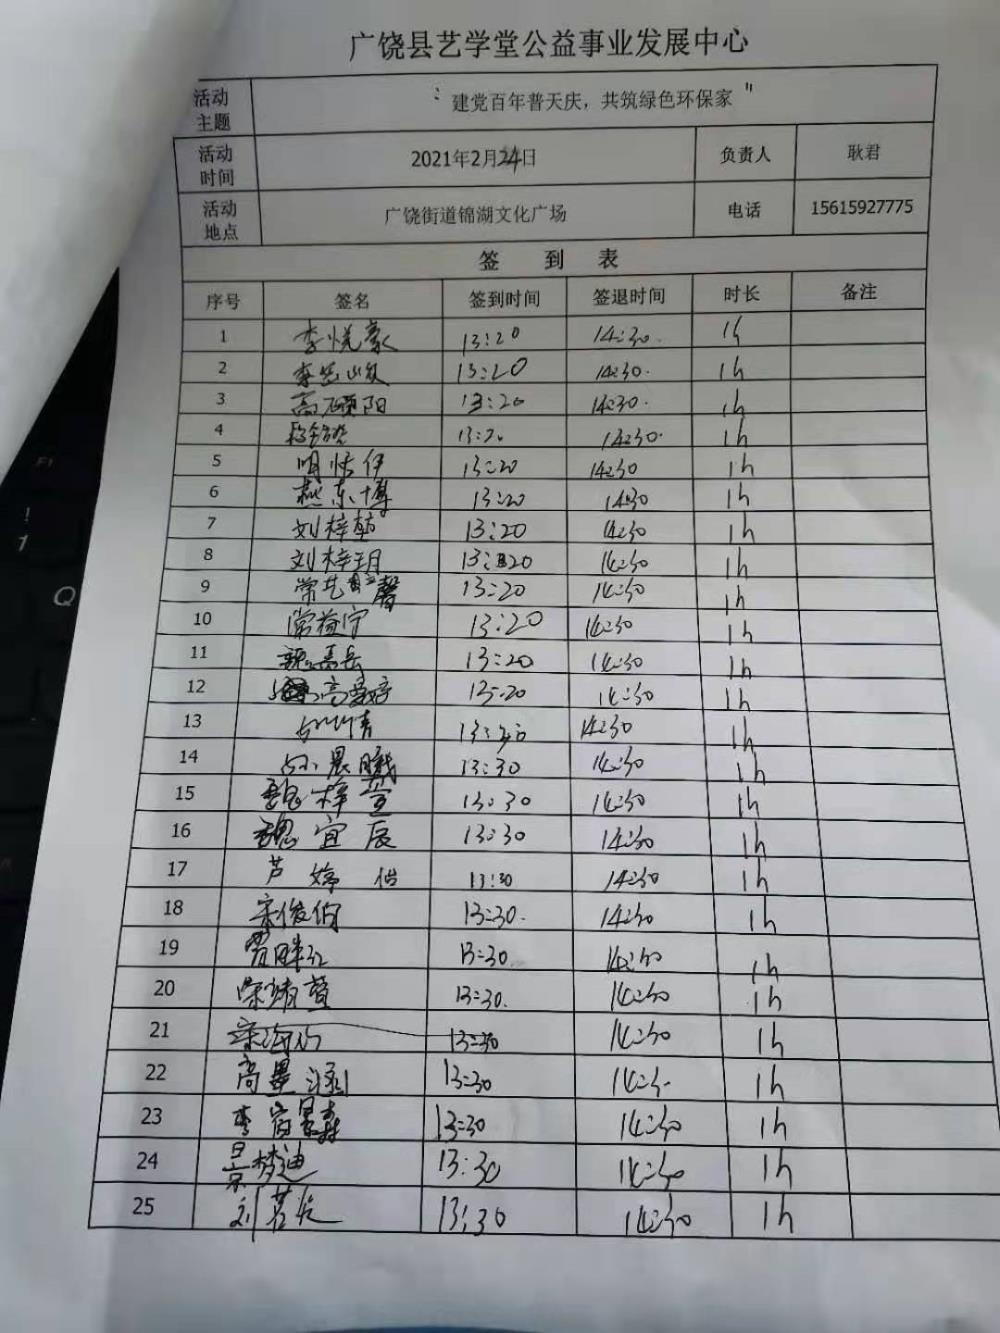 广饶县艺学堂公益事业发展中心
活动主题 “建党百年普天庆，共筑绿色环保家”
活动时间 2021年2月24日 负责人 耿君
活动地点 广饶街道锦湖文化广场 电话 15615927775
签 到 表
序号 签名 签到时间 签退时间 时长 备注
1 李悦豪 13:20 14:30. 1h
2 13:20 14:30. 1h
3 高硕阳 13:20 14:30. 1h
4 13:20 14:30. 1h
5 明恬伊 13:20 14:30 1h
6 燕东博 13:20 14:30 1h
7 刘梓 13:20 14:30 1h
8 刘梓玥 13:20 14:30 1h
9 常艺馨 13:20 14:30 1h
10 常益宁 13:20 14:30 1h
11 13:20 14:30 1h
12 13:20 14:30 1h
13 14:30 1h
14 晨曦 13:30 14:30 1h
15 魏梓萱 13:30 14:30 1h
16 魏宜辰 13:30 14:30 1h
17 芦婷 13:30 14:30 1h
18 宋俊伯 13:30. 14:30 1h
19 13:30. 14:30 1h
20 13:30. 14:30 1h
21 13:30 14:30 1h
22 高墨涵 13:30 1h
23 李 森 13:30 14:30 1h
24 景梦迪 13:30 14:30 1h
25 刘 13:30 14:30 1h
F1
!
1
Q